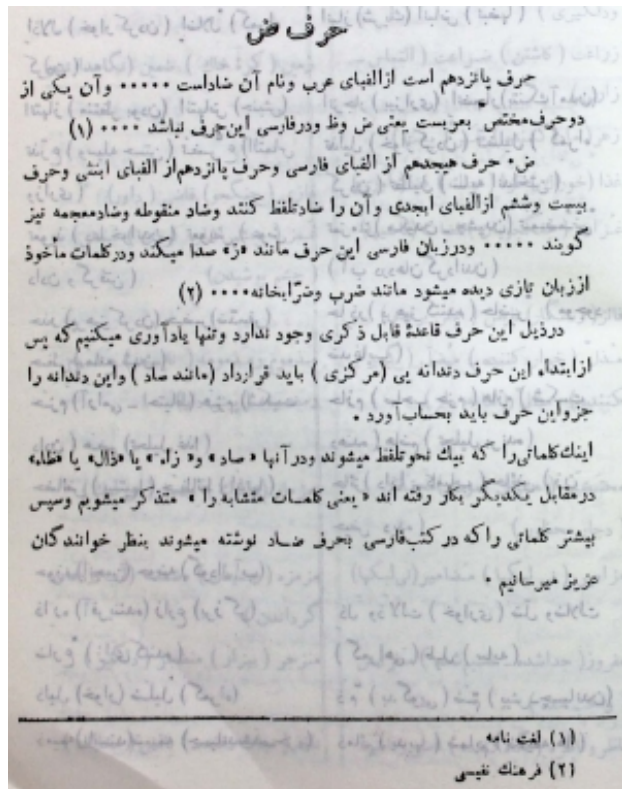 حرف ض
حرف پانزدهم است ازالفبای عرب ونام آن ضاداست ۰۰۰۰۰ وآن یکی از
دوحرف‌مختص بعربست یعنی ض وظ ودرفارسی این‌حرف نباشد ۰۰۰۰ (۱)
ض۰ حرف هیجدهم از الفبای فارسی وحرف پانزدهم‌از الفبای ابتثی وحرف
بیست وششم ازالفبای ابجدی وآن را ضادتلفظ کنند وضاد منقوطه وضادمعجمه نیز
گویند ۰۰۰۰۰ ودرزبان فارسی این حرف مانند «ز» صدا میکند ودرکلمات مأخوذ
اززبان تازی دیده میشود مانند ضرب وضرّابخانه۰۰۰۰ (۲)
درذیل این حرف قاعدهٔ قابل ذکری وجود ندارد وتنها یادآوری میکنیم که پس
ازابتداء این حرف دندانه یی (مرکزی) باید قرارداد (مانند صاد) واین دندانه را
جزواین حرف باید بحساب‌آورد ۰
اینك‌کلماتی‌را که بیك نحوتلفظ میشوند ودرآنها «ضاد» و« زاء» یا «ذال» یا «ظاء»
درمقابل یکدیگر بکار رفته اند « یعنی کلمات متشابه را » متذکر میشویم وسپس
بیشتر کلماتی راکه درکتب‌فارسی بحرف ضاد نوشته میشوند بنظر خوانندگان
عزیز میرسانیم ۰
(۱) لغت نامه
(۲) فرهنك نفیسی